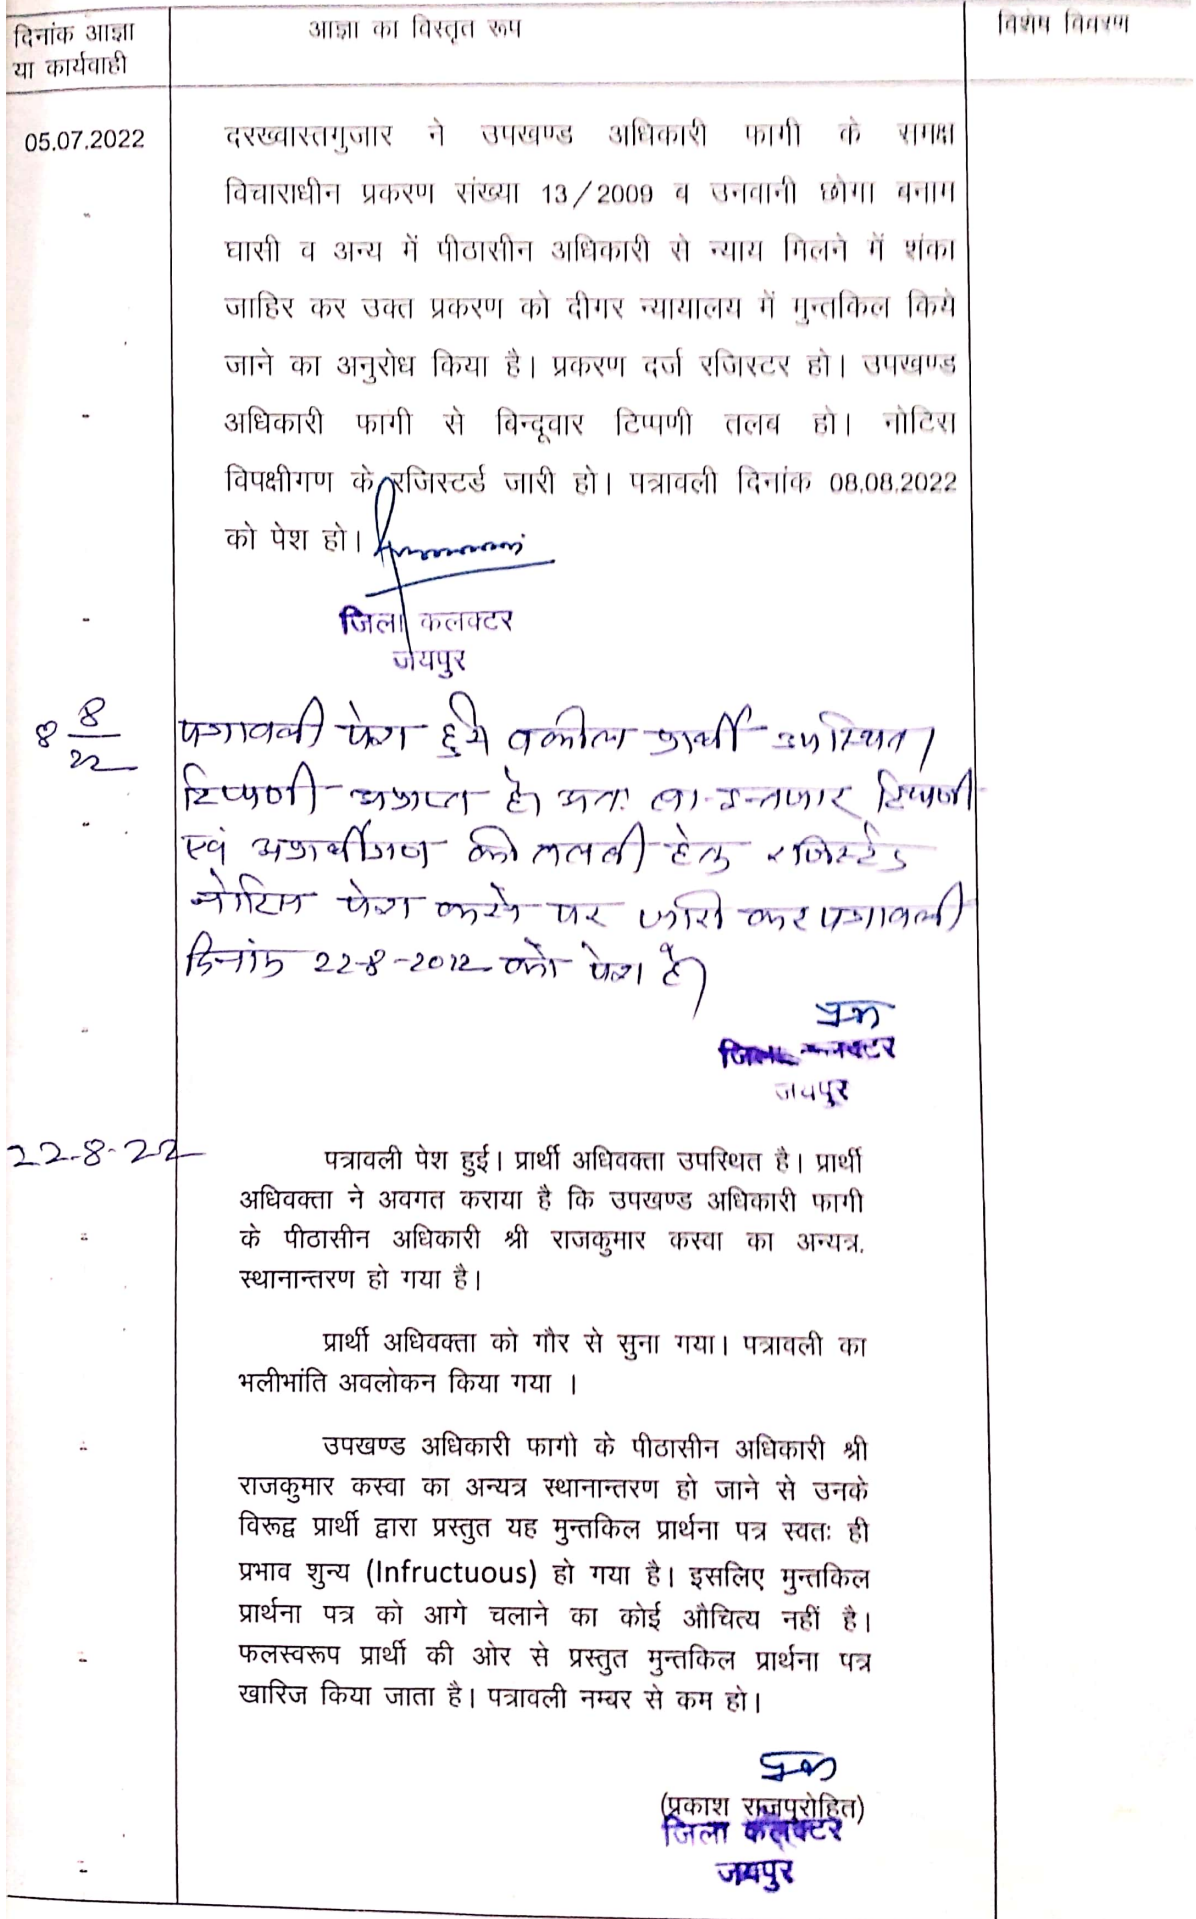 दिनांक आज्ञा
या कार्यवाही
आज्ञा का विस्तृत रूप
विशेष विवरण
05.07.2022
दरख्वास्तगुजार ने उपखण्ड अधिकारी फागी के समक्ष
विचाराधीन प्रकरण संख्या 13/2009 ब उनवानी छोगा बनाम
घासी व अन्य में पीठासीन अधिकारी से न्याय मिलने में शंका
जाहिर कर उक्त प्रकरण को दीगर न्यायालय में मुन्तकिल किये
जाने का अनुरोध किया है। प्रकरण दर्ज रजिस्टर हो। उपखण्ड
अधिकारी फागी से बिन्दूवार टिप्पणी तलब हो। नोटिस
विपक्षीगण के रजिस्टर्ड जारी हो। पत्रावली दिनांक 08.08.2022
को पेश हो।
जिला कलक्टर
जयपुर
8 8/22
पत्रावली पेश हुये वकील प्रार्थी उपस्थित।
टिप्पणी अप्राप्त है। अतः बा-इन्तजार टिप्पणी
एवं अप्रार्थीगण की तलबी हेतु रजिस्टर्ड
नोटिस पेश करने पर जारी कर पत्रावली
दिनांक 22-8-2022 को पेश हो।
जिला कलक्टर
जयपुर
22-8-22
पत्रावली पेश हुई। प्रार्थी अधिवक्ता उपस्थित है। प्रार्थी
अधिवक्ता ने अवगत कराया है कि उपखण्ड अधिकारी फागी
के पीठासीन अधिकारी श्री राजकुमार कस्वा का अन्यत्र
स्थानान्तरण हो गया है।
प्रार्थी अधिवक्ता को गौर से सुना गया। पत्रावली का
भलीभांति अवलोकन किया गया ।
उपखण्ड अधिकारी फागी के पीठासीन अधिकारी श्री
राजकुमार कस्वा का अन्यत्र स्थानान्तरण हो जाने से उनके
विरूद्व प्रार्थी द्वारा प्रस्तुत यह मुन्तकिल प्रार्थना पत्र स्वतः ही
प्रभाव शुन्य (Infructuous) हो गया है। इसलिए मुन्तकिल
प्रार्थना पत्र को आगे चलाने का कोई औचित्य नहीं है।
फलस्वरूप प्रार्थी की ओर से प्रस्तुत मुन्तकिल प्रार्थना पत्र
खारिज किया जाता है। पत्रावली नम्बर से कम हो।
(प्रकाश राजपुरोहित)
जिला कलक्टर
जयपुर